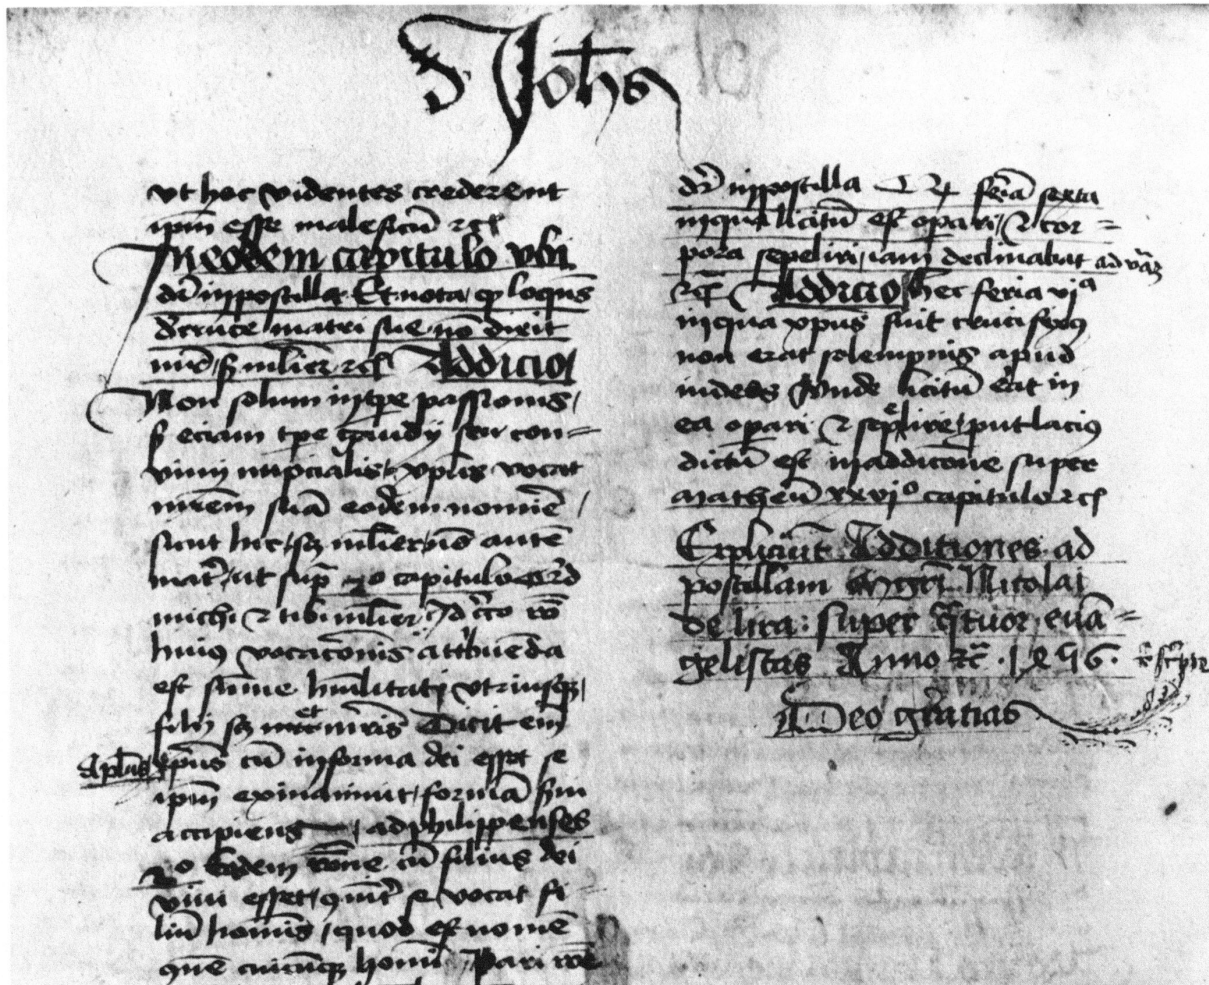 Johs
vt hoc videntes crederent
ipm esse maleficū
In eodem capitulo vbi
dr in postilla Et nota loquēs
de cruce matri sue nō dixit
mr̄ mulier Addicio
Non solum in tpe passionis
eciam tpe seu con=
uiuii nupcialis xpūs vocat
mrēm suā eodem nomīe
sicut hic mulier autē
ut supra 2o capitulo
michi et tibi mulier
huius vocacōnis attribuēda
est sūme hūilitati vtriusque
filij et mr̄is Dicit enī
Aplūs cū in forma dei esset se
ipm exinaniuit formā
accipiens ad philippenses
2o Eadem rōne cū filius dei
viui esset se vocat fi
liū hominis quod est nomē
homī Pari rōne
dr in postilla feria sexta
in qua licitū est opari et cor=
pora sepeliri iam declinabat ad
Addicio hec feria vja
in qua xpūs fuit crucifixus
non erat solempnis apud
iudeos vnde licitū erat in
ea opari et sepelire put lacius
dictū est in addicōne super
Matheū xxvio capitulo
Expliciūt Additiones ad
postillam mgri Nicolai
de lira super qtuor euā=
gelistas Anno
Deo gratias